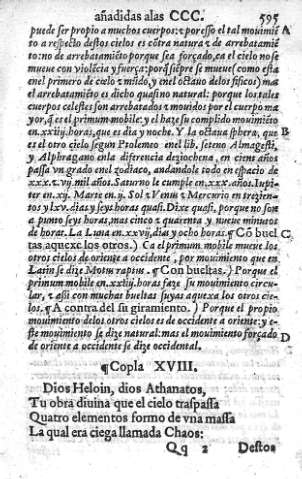 añadidas alas CCC. 595
puede ser propio a muchos cuerpos: z por esso el tal mouimiẽ A
to a respecto destos cielos es cõtra natura z de arrebatamiẽ
to: no de arrebatamiẽto porque sea forçado, ca el cielo no se
mueue con violẽcia y fuerça: porq̃ siẽpre se mueue (como esta
enel primero de cœlo z mũdo, y enel octauo delos fisicos) mas
el arrebatamiẽto es dicho quasi no natural: porque los tales
cuerpos celestes son arrebatados z mouidos por el cuerpo ma
yor, q̃ es el primum mobile: y el haze su complido mouimiẽto
en.xxiiij.horas, que es dia y noche. Y la octaua sphera, que B
es el otro cielo segun Ptolemeo enel lib. seteno Almagesti,
y Alphragano enla diferencia deziochena, en cient años
passa vn grado enel zodiaco, andandole todo en espacio de
xxx.z.vj.mil años. Saturno le cumple en.xxx.años. Iupi-
ter en.xij. Marte en.ij. Sol z Venus z Mercurio en trezien-
tos y lxv.dias y seys horas quasi. Dize quasi, porque no son
a punto seys horas, mas cinco z quarenta y nueue minutos
de horas. La Luna en xxvij.dias y ocho horas. ¶ Cõ buel C
tas aquexe los otros.) Ca el primum mobile mueue los
otros cielos de oriente a occidente, por mouimiento que en
Latin se dize Motus raptus. ¶ Con bueltas.) Porque el
primum mobile en.xxiiij.horas faze su mouimiento circu-
lar, z assi con muchas bueltas suyas aquexa los otros cie-
los. ¶ A contra del su giramiento.) Porque el propio
mouimiento delos otros cielos es de occidente a oriente: y e-
ste mouimiento se dize natural: mas el mouimiento forçado D
de oriente a occidente se dize occidental.
¶ Copla XVIII.
Dios Heloin, dios Athanatos,
Tu obra diuina que el cielo traspassa
Quatro elementos formo de vna massa
La qual era ciega llamada Chaos:
Qq 2 Destos